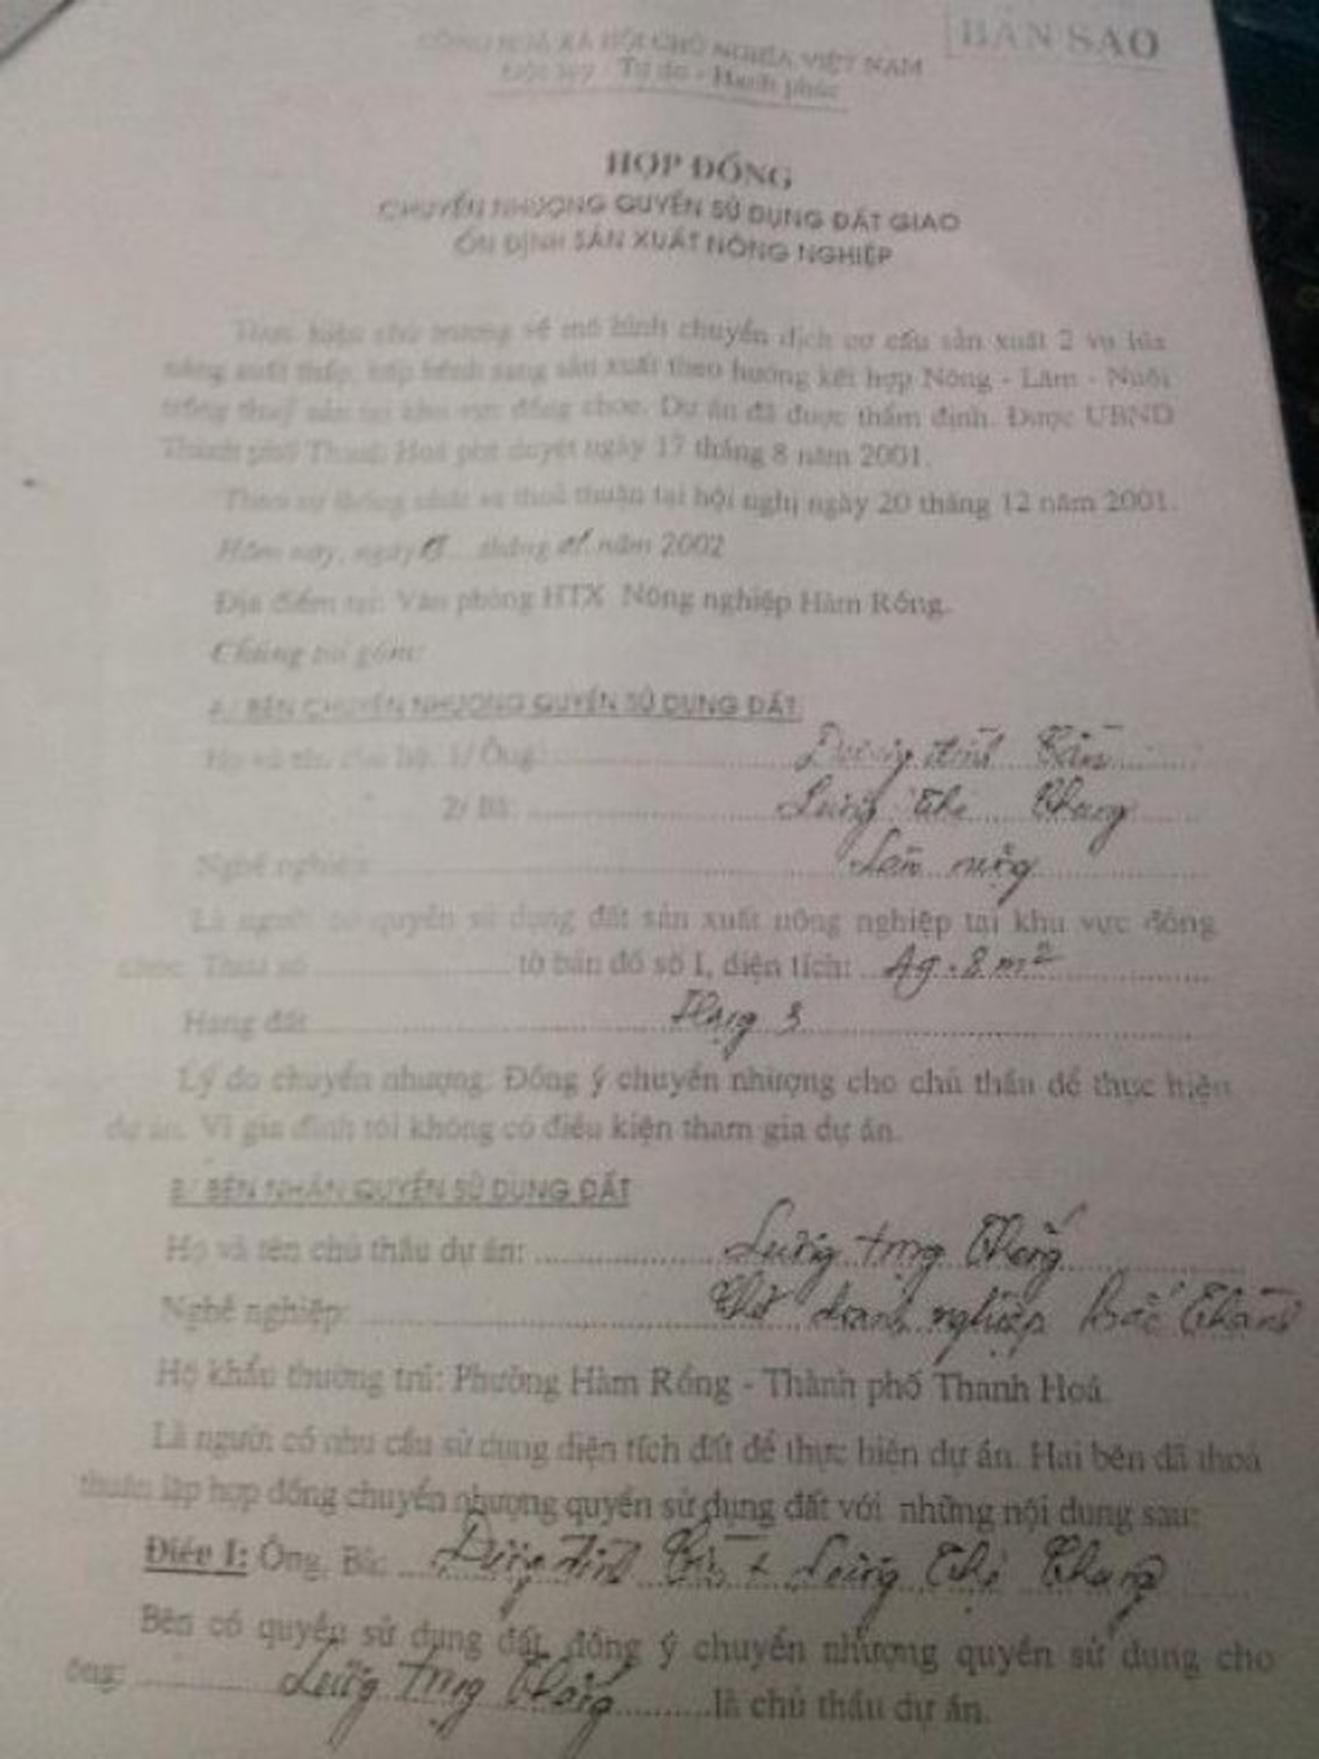 BẢN SAO
CỘNG HOÀ XÃ HỘI CHỦ NGHĨA VIỆT NAM
Độc lập - Tự do - Hạnh phúc
HỢP ĐỒNG
CHUYỂN NHƯỢNG QUYỀN SỬ DỤNG ĐẤT GIAO
ỔN ĐỊNH SẢN XUẤT NÔNG NGHIỆP
Thực hiện chủ trương về mô hình chuyển dịch cơ cấu sản xuất 2 vụ lúa
năng suất thấp, bấp bênh sang sản xuất theo hướng kết hợp Nông - Lâm - Nuôi
trồng thuỷ sản tại khu vực đồng chọc. Dự án đã được thẩm định. Được UBND
Thành phố Thanh Hoá phê duyệt ngày 17 tháng 8 năm 2001.
Theo sự thống nhất và thoả thuận tại hội nghị ngày 20 tháng 12 năm 2001.
Hôm nay, ngày tháng 01 năm 2002
Địa điểm tại: Văn phòng HTX Nông nghiệp Hàm Rồng.
Chúng tôi gồm:
A/ BÊN CHUYỂN NHƯỢNG QUYỀN SỬ DỤNG ĐẤT
Họ và tên chủ hộ: 1/ Ông: Dương đình
2/ Bà: Lương Thị
Nghề nghiệp: Làm ruộng
Là người có quyền sử dụng đất sản xuất nông nghiệp tại khu vực đồng
chọc. Thửa số tờ bản đồ số 1, diện tích: m²
Hạng đất Hạng 3
Lý do chuyển nhượng: Đồng ý chuyển nhượng cho chủ thầu để thực hiện
dự án. Vì gia đình tôi không có điều kiện tham gia dự án.
B/ BÊN NHẬN QUYỀN SỬ DỤNG ĐẤT
Họ và tên chủ thầu dự án: Lương trọng Thắng
Nghề nghiệp: Chủ doanh nghiệp Bắc Thành
Hộ khẩu thường trú: Phường Hàm Rồng - Thành phố Thanh Hoá.
Là người có nhu cầu sử dụng diện tích đất để thực hiện dự án. Hai bên đã thoả
thuận lập hợp đồng chuyển nhượng quyền sử dụng đất với những nội dung sau:
Điều 1: Ông, Bà: Dương đình + Lương Thị
Bên có quyền sử dụng đất, đồng ý chuyển nhượng quyền sử dụng cho
ông: Lương trọng Thắng là chủ thầu dự án.